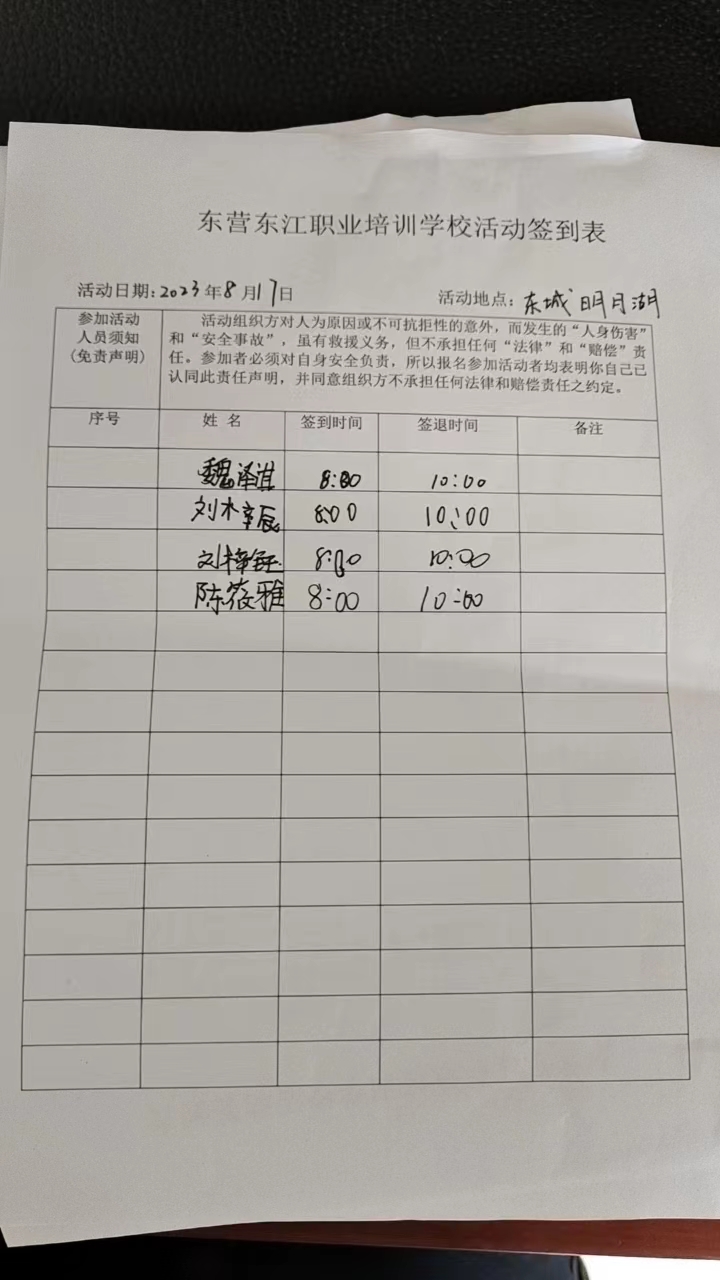 东营东江职业培训学校活动签到表
活动日期:2023年8月17日 活动地点:东城明月湖
参加活动人员须知(免责声明)
活动组织方对人为原因或不可抗拒性的意外,而发生的“人身伤害”
和“安全事故”,虽有救援义务,但不承担任何“法律”和“赔偿”责
任。参加者必须对自身安全负责,所以报名参加活动者均表明你自己已
认同此责任声明,并同意组织方不承担任何法律和赔偿责任之约定。
序号 姓 名 签到时间 签退时间 备注
魏泽淇 8:00 10:00
刘木辛辰 8:00 10:00
刘梓钰 8:00 10:00
陈筱雅 8:00 10:00